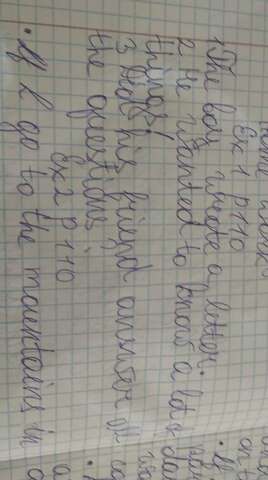 Home work
Ex 1 p 110
1 The boy wrote a letter.
2 He wanted to know a lot
things!
3 Did his friend answer all
the questions
Ex 2 p 110
. If I go to the mountains in